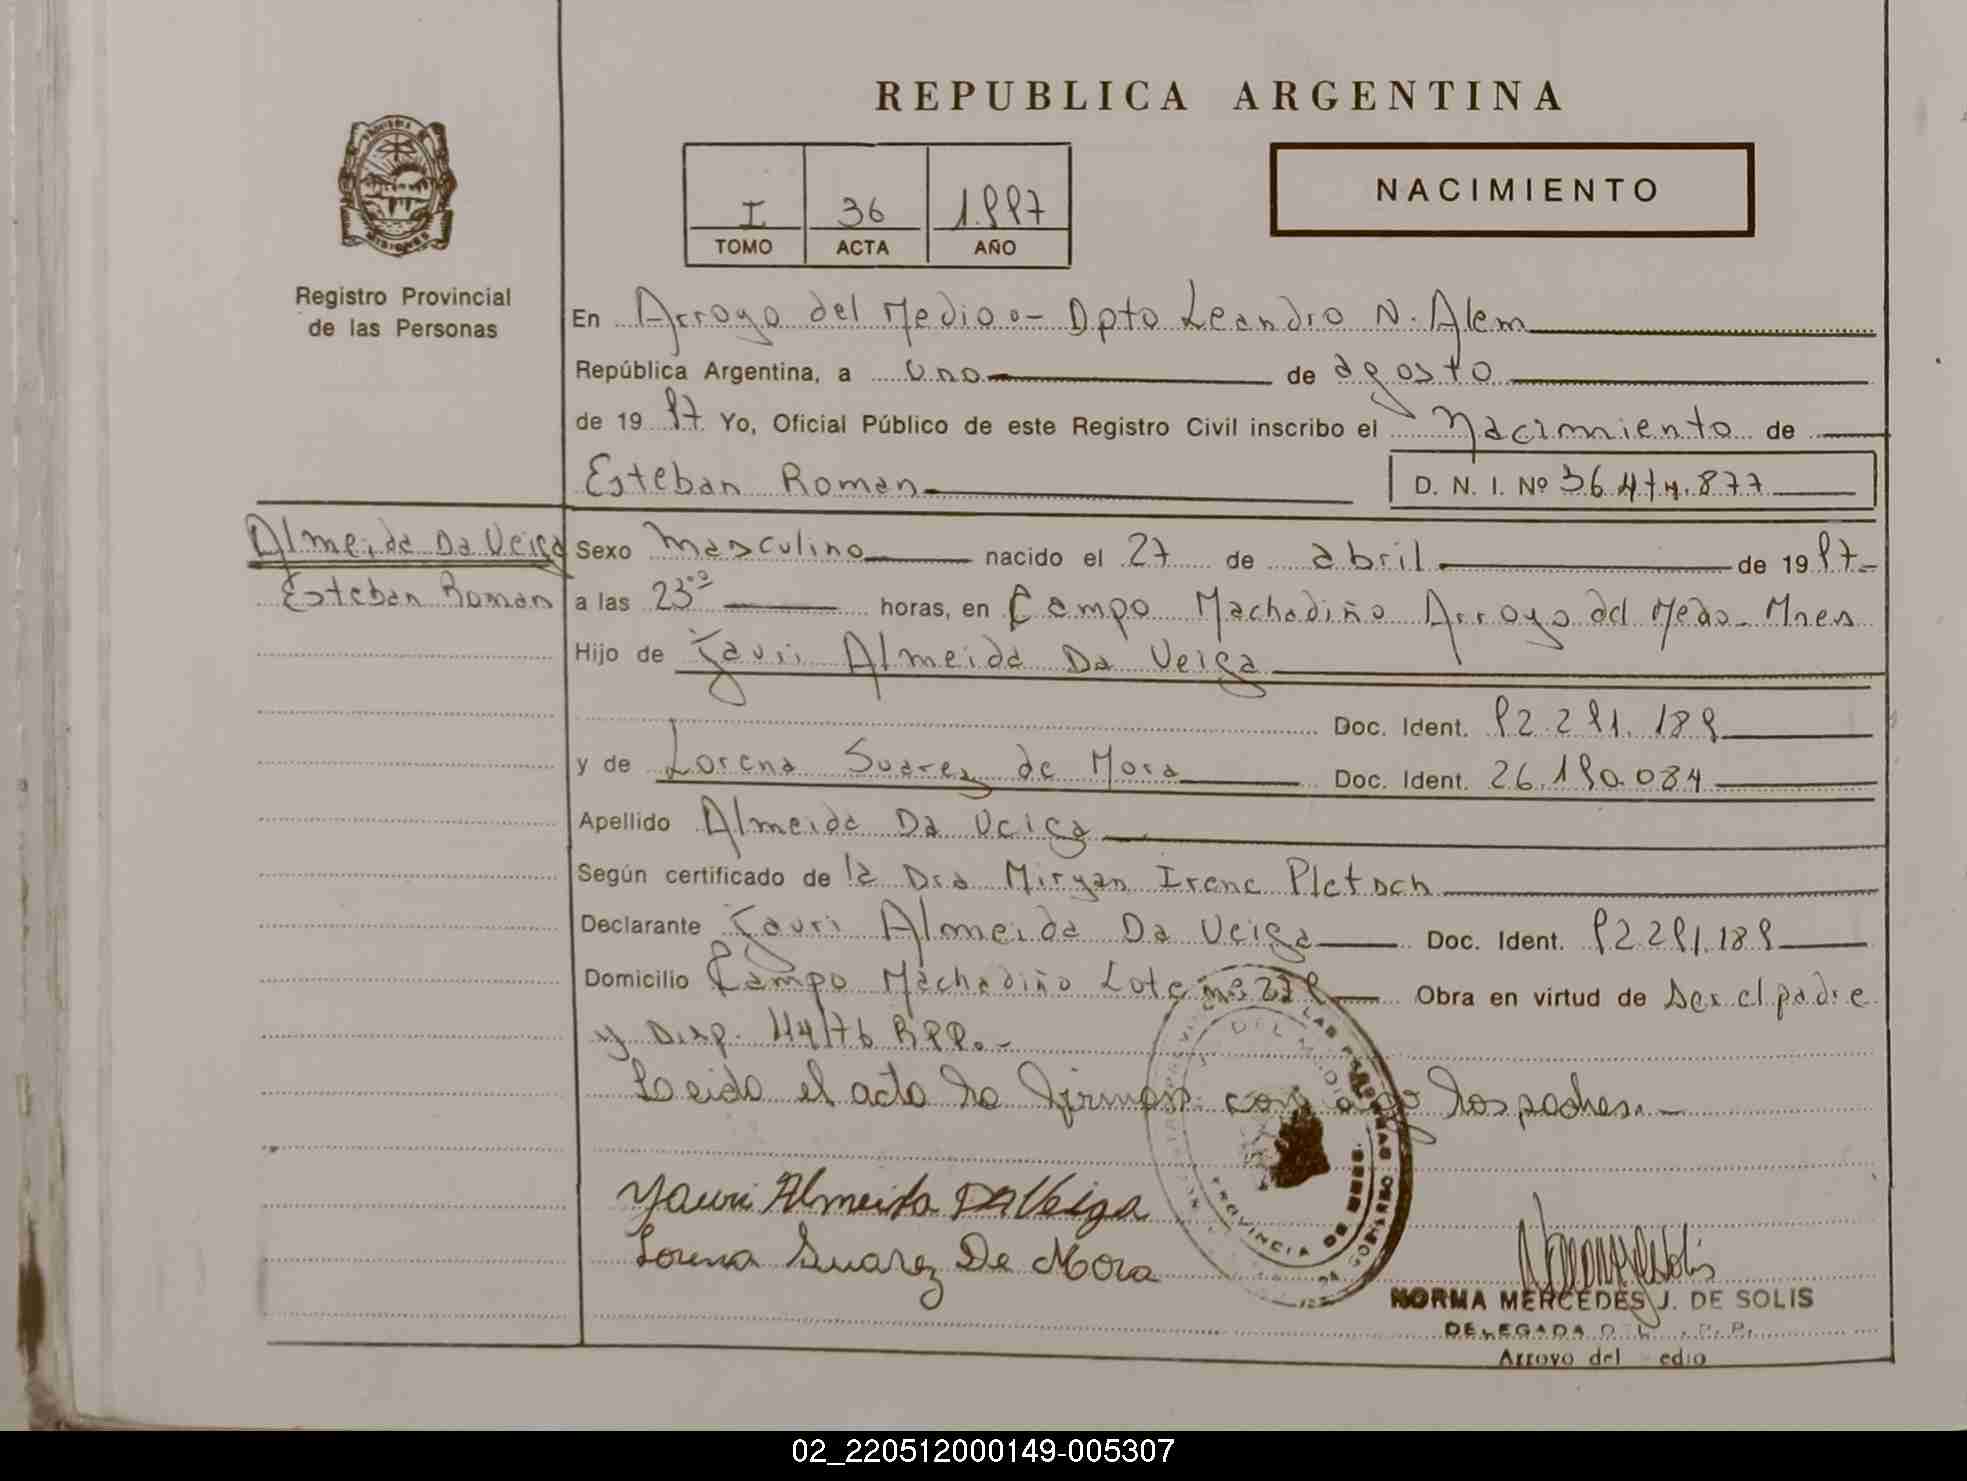 REPUBLICA ARGENTINA
NACIMIENTO
I 36 1.997
TOMO ACTA AÑO
Registro Provincial
de las Personas
En Arroyo del Medio.- Dpto Leandro N. Alem
República Argentina, a uno de agosto
de 19 97 Yo, Oficial Público de este Registro Civil inscribo el Nacimiento de
Esteban Roman D. N. I. Nº 36.474.877
Almeida Da Veiga
Esteban Roman
Sexo masculino nacido el 27 de abril de 19 97.-
a las 23ºº horas, en Campo Machadiño Arroyo del Medio - Mnes
Hijo de Yauri Almeida Da Veiga
Doc. Ident. 92.291.189
y de Lorena Suarez de Mora Doc. Ident. 26.190.084
Apellido Almeida Da Veiga
Según certificado de la Dra Miryan Irene Pletsch
Declarante Yauri Almeida Da Veiga Doc. Ident. 92.291.189
Domicilio Campo Machadiño Lote Obra en virtud de ser el padre
y Disp. 44/76 RPP.-
Leida el acta la firman los padres.-
Yauri Almeida Da Veiga
Lorena Suarez De Mora
PROVINCIA DE
NORMA MERCEDES J. DE SOLIS
DELEGADA
Arroyo del
02_220512000149-005307